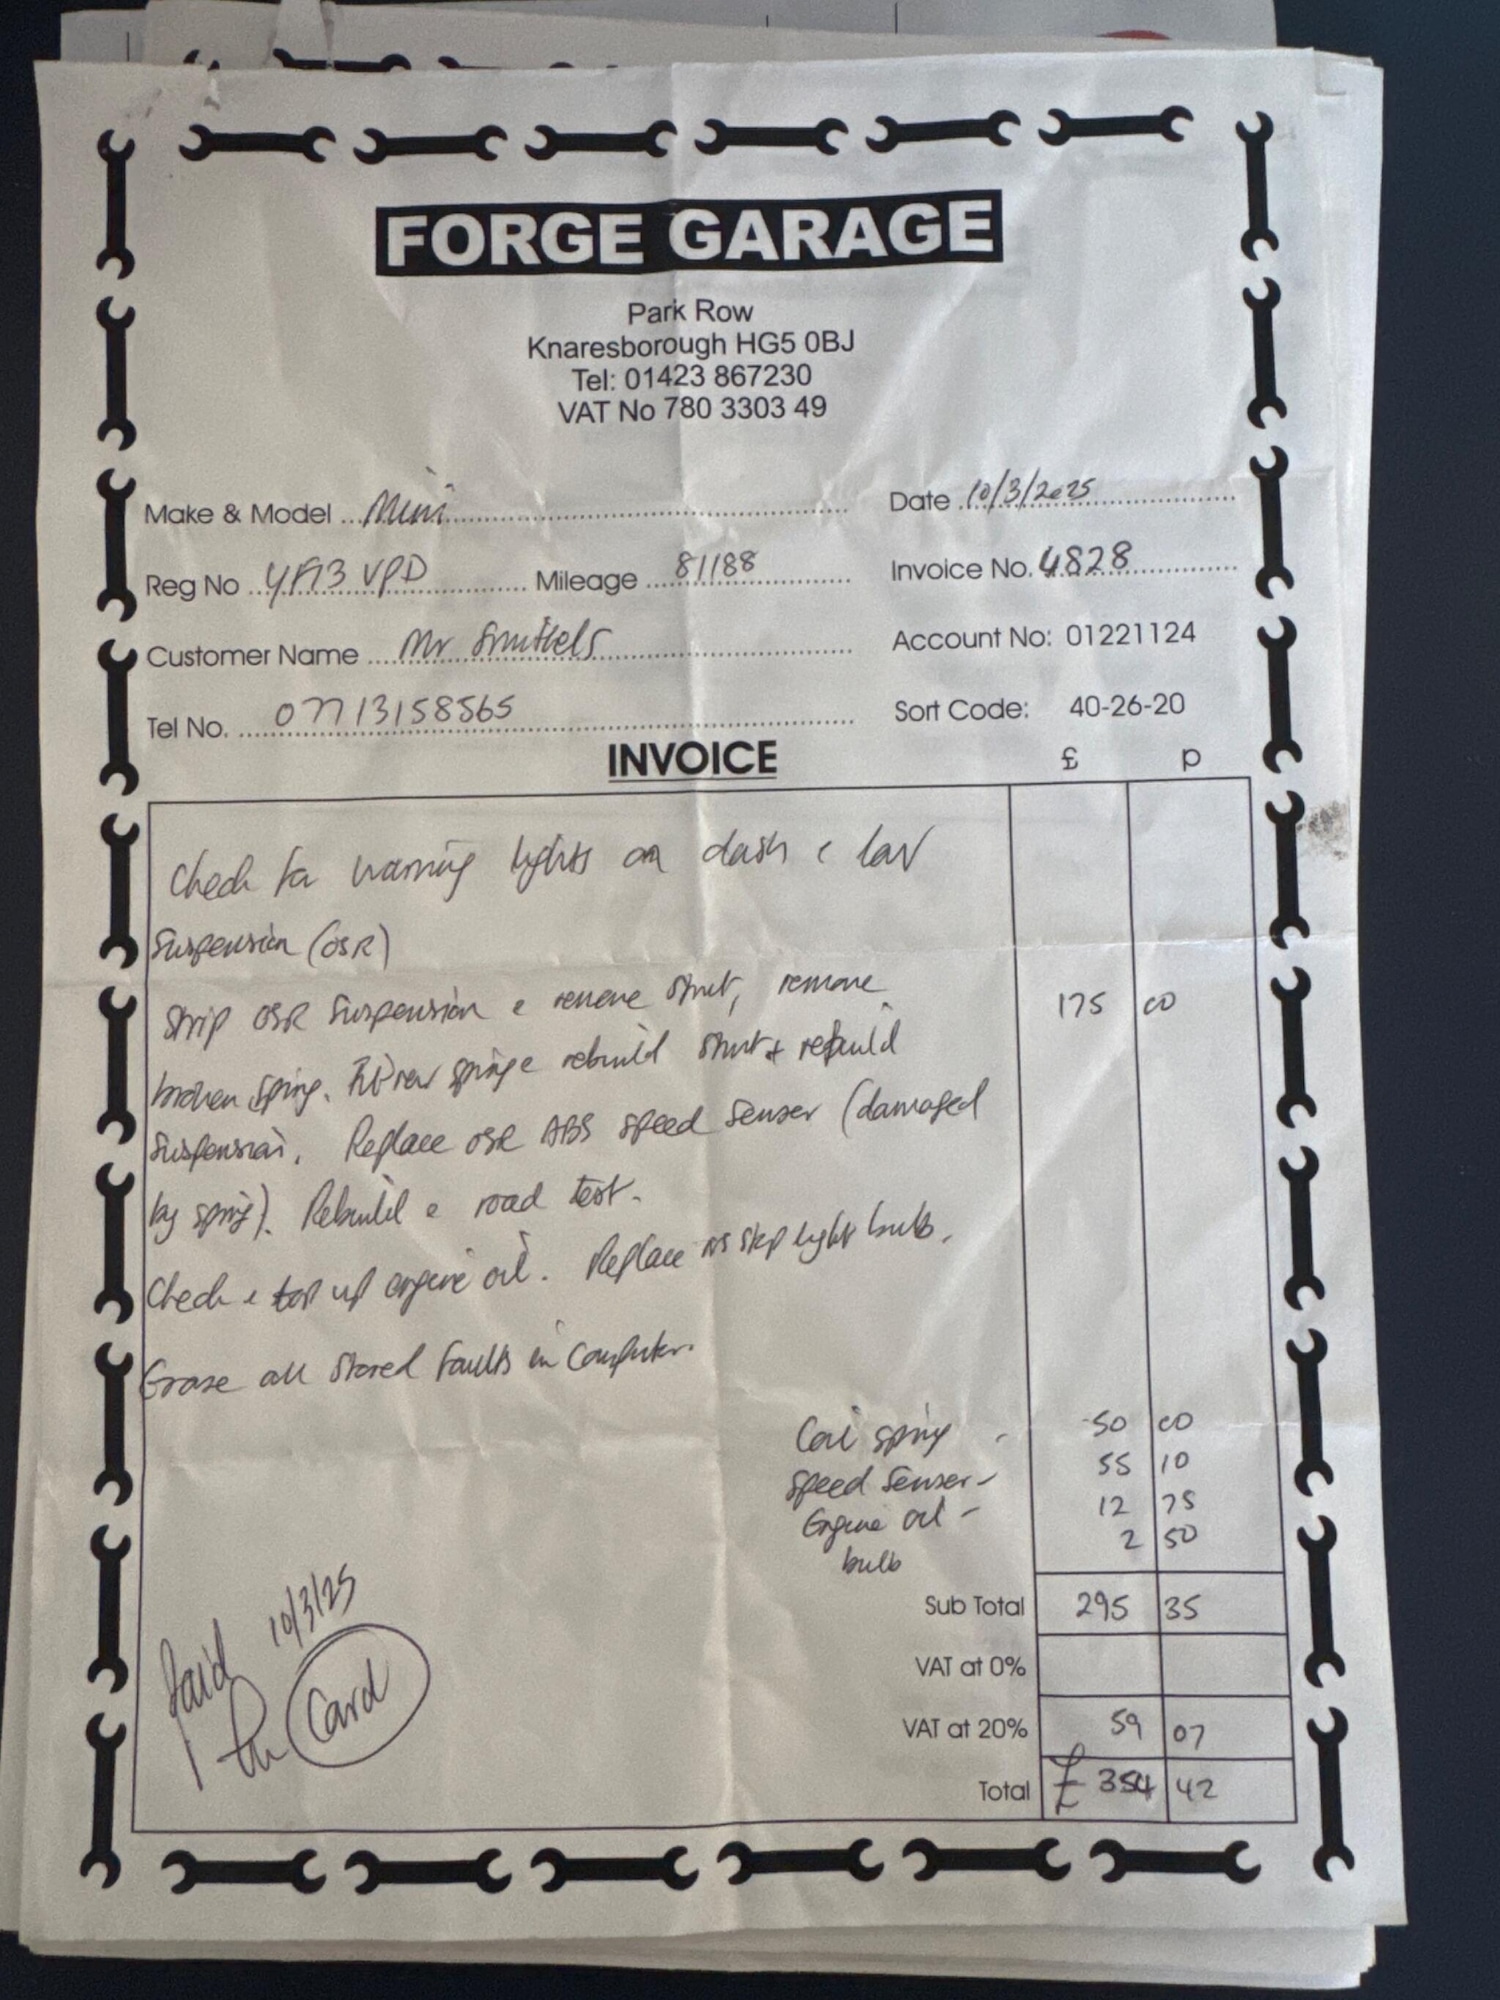 FORGE GARAGE
Park Row
Knaresborough HG5 0BJ
Tel: 01423 867230
VAT No 780 3303 49
Make & Model Mini Date 10/3/2025
Reg No YF13 VPD Mileage 81188 Invoice No. 4828
Customer Name Mr Account No: 01221124
Tel No. 07713158565 Sort Code: 40-26-20
INVOICE £ p
Check for warning lights on dash & low
Suspension (OSR)
Strip OSR Suspension & remove strut, remove 175 00
broken spring. Fit new spring & rebuild strut & rebuild
suspension. Replace OSR ABS speed senser (damaged
by spring). Rebuild & road test.
Check & top up engine oil. Replace NS stop light bulb.
Erase all stored faults in computer.
Coil spring - 50 00
Speed Senser - 55 10
Engine oil - 12 75
bulb 2 50
Sub Total 295 35
VAT at 0%
VAT at 20% 59 07
Total £ 354 42
Paid 10/3/25
Card